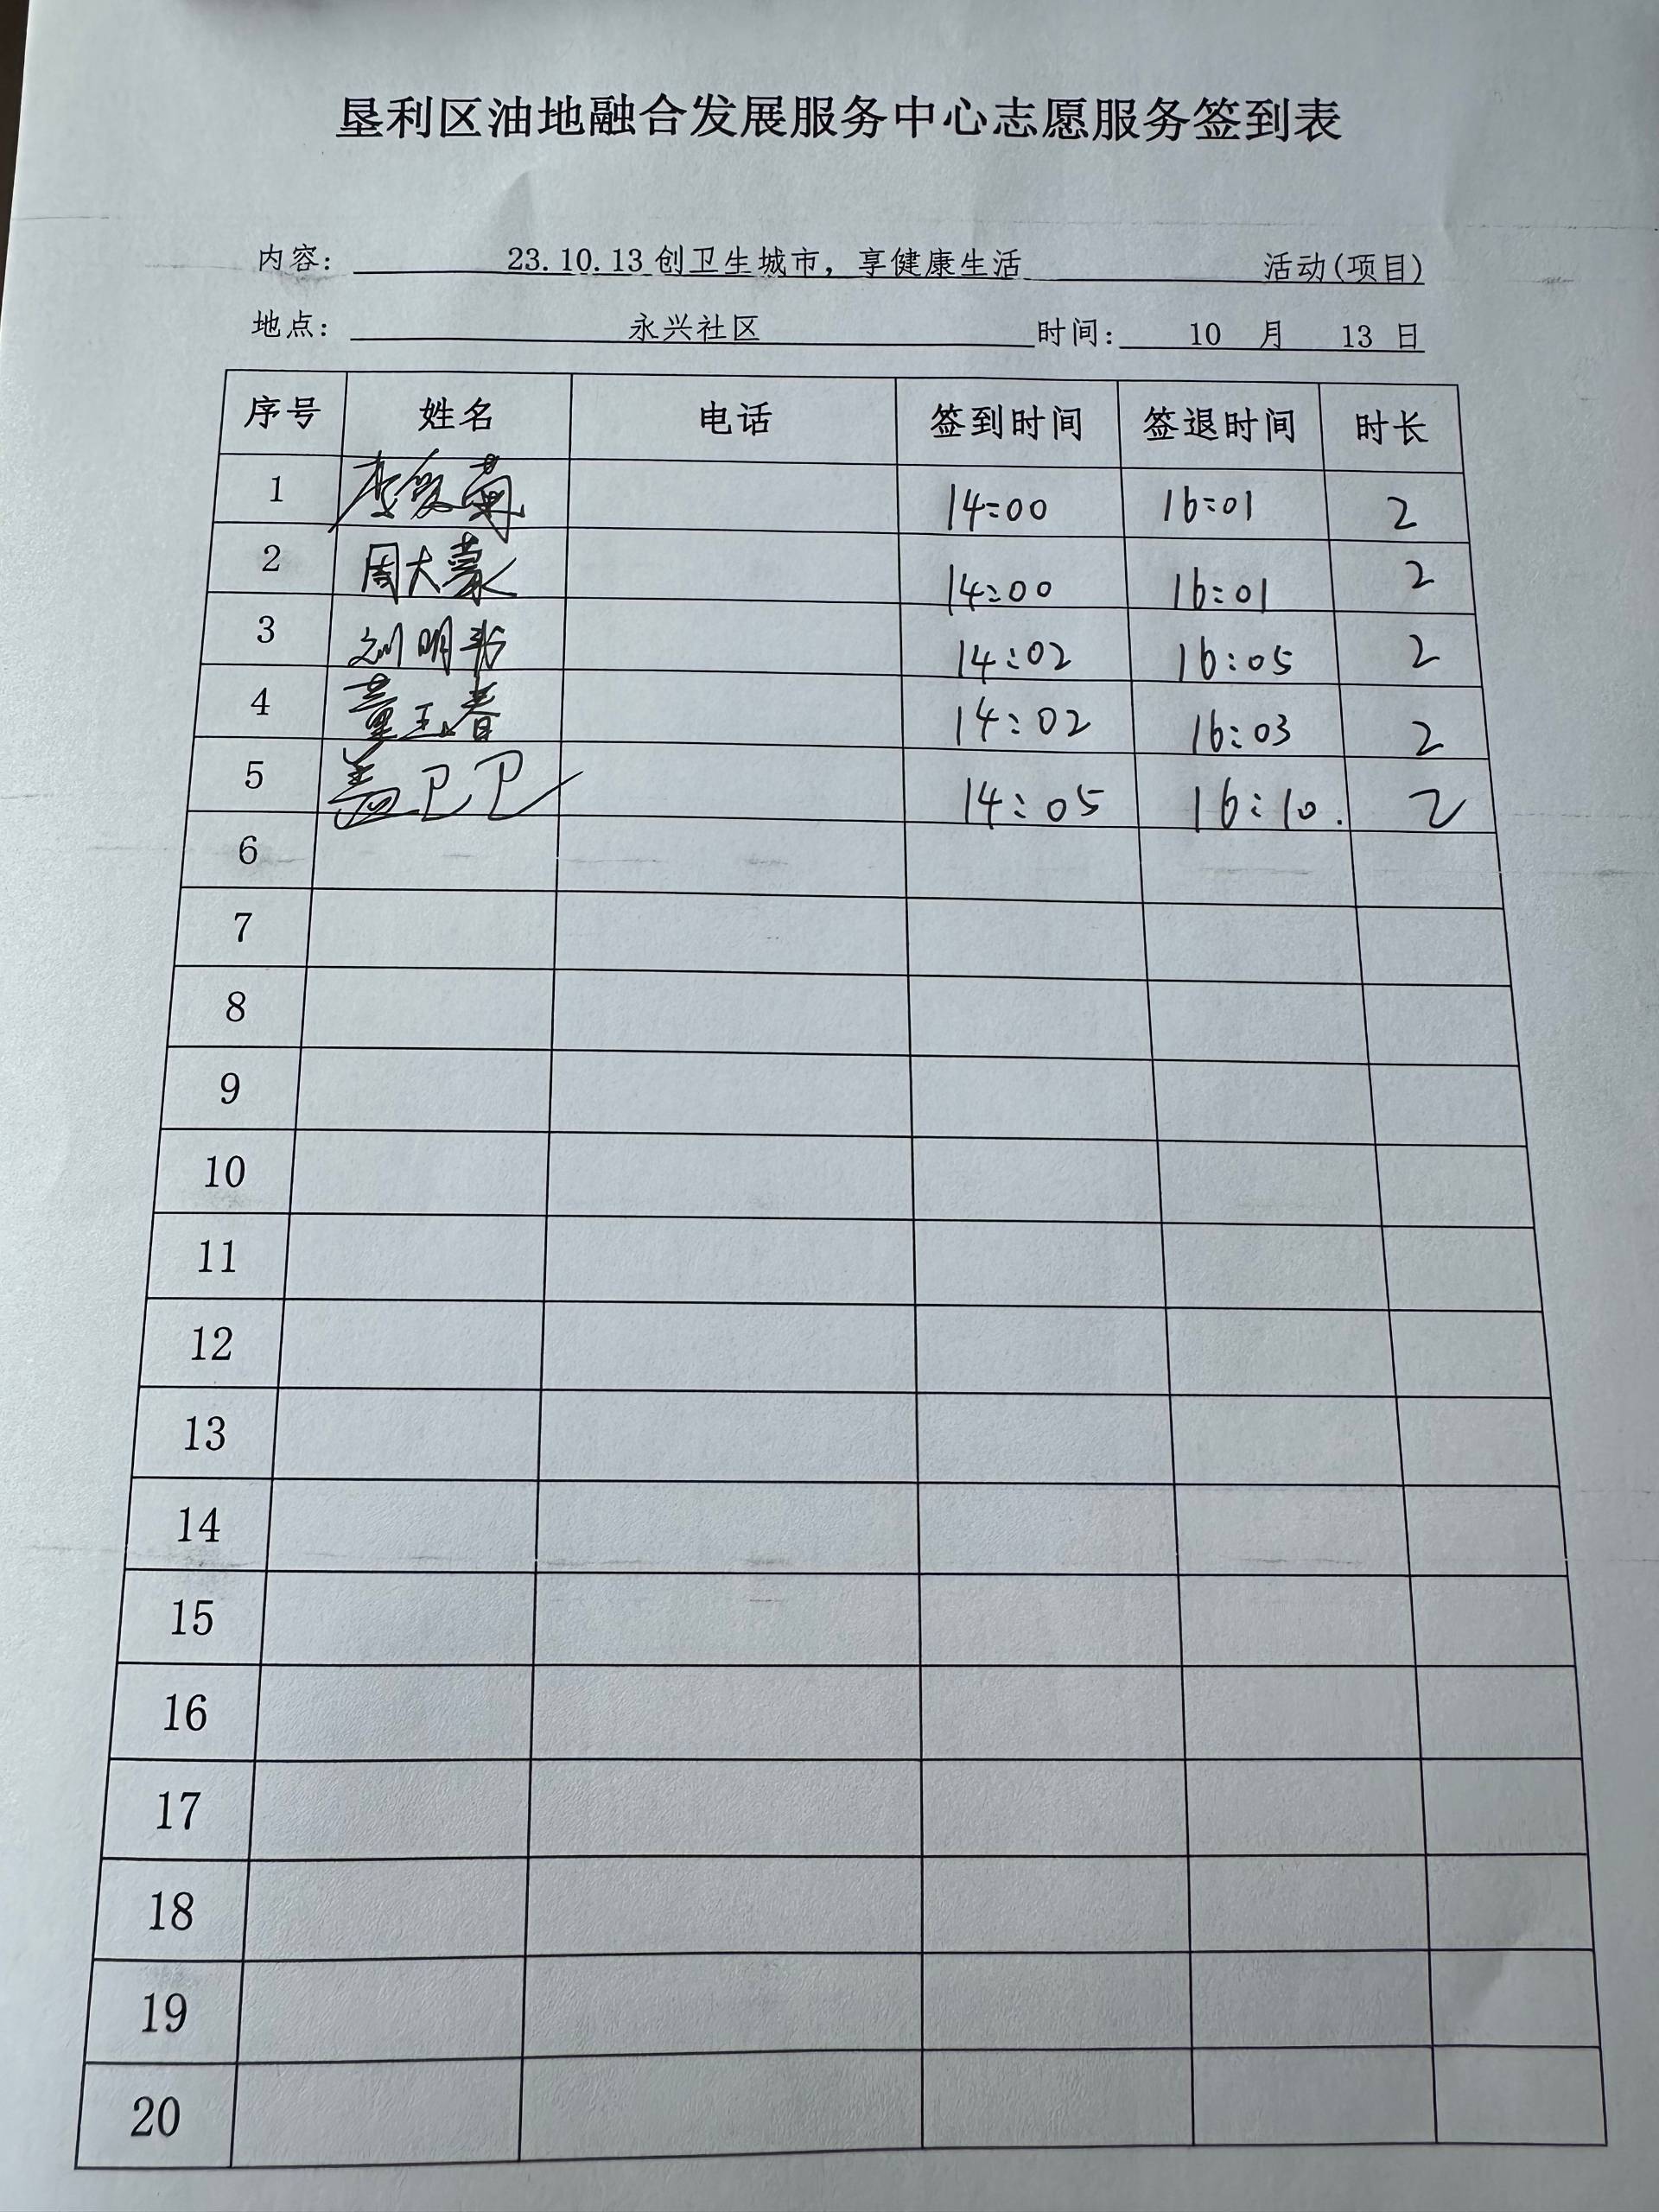 垦利区油地融合发展服务中心志愿服务签到表
内容: 23.10.13创卫生城市，享健康生活 活动(项目)
地点: 永兴社区 时间: 10 月 13 日
序号 姓名 电话 签到时间 签退时间 时长
1 李爱菊 14:00 16:01 2
2 周大蒙 14:00 16:01 2
3 刘明 14:02 16:05 2
4 董玉春 14:02 16:03 2
5 盖卫卫 14:05 16:10. 2
6
7
8
9
10
11
12
13
14
15
16
17
18
19
20